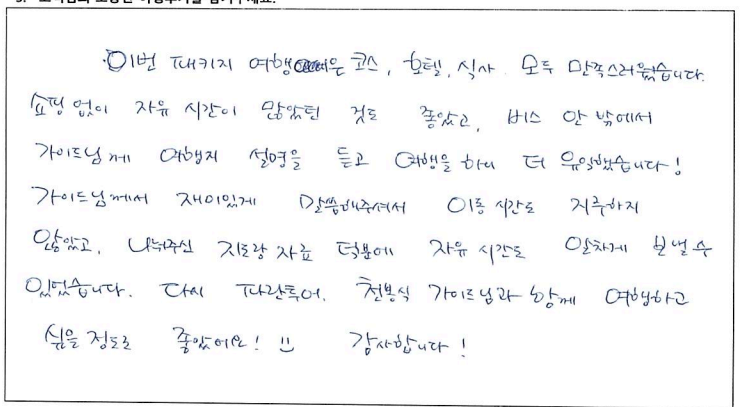 이번 패키지 여행은 코스, 호텔, 식사 모두 만족스러웠습니다.
쇼핑 없이 자유 시간이 많았던 것도 좋았고, 버스 안 밖에서
가이드님께 여행지 설명을 듣고 여행을 하니 더 유익했습니다!
가이드님께서 재미있게 말씀해주셔서 이동 시간도 지루하지
않았고, 나눠주신 지도랑 자료 덕분에 자유 시간도 알차게 보낼 수
있었습니다. 다시 파란투어, 천봉식 가이드님과 함께 여행하고
싶을 정도로 좋았어요! 감사합니다!